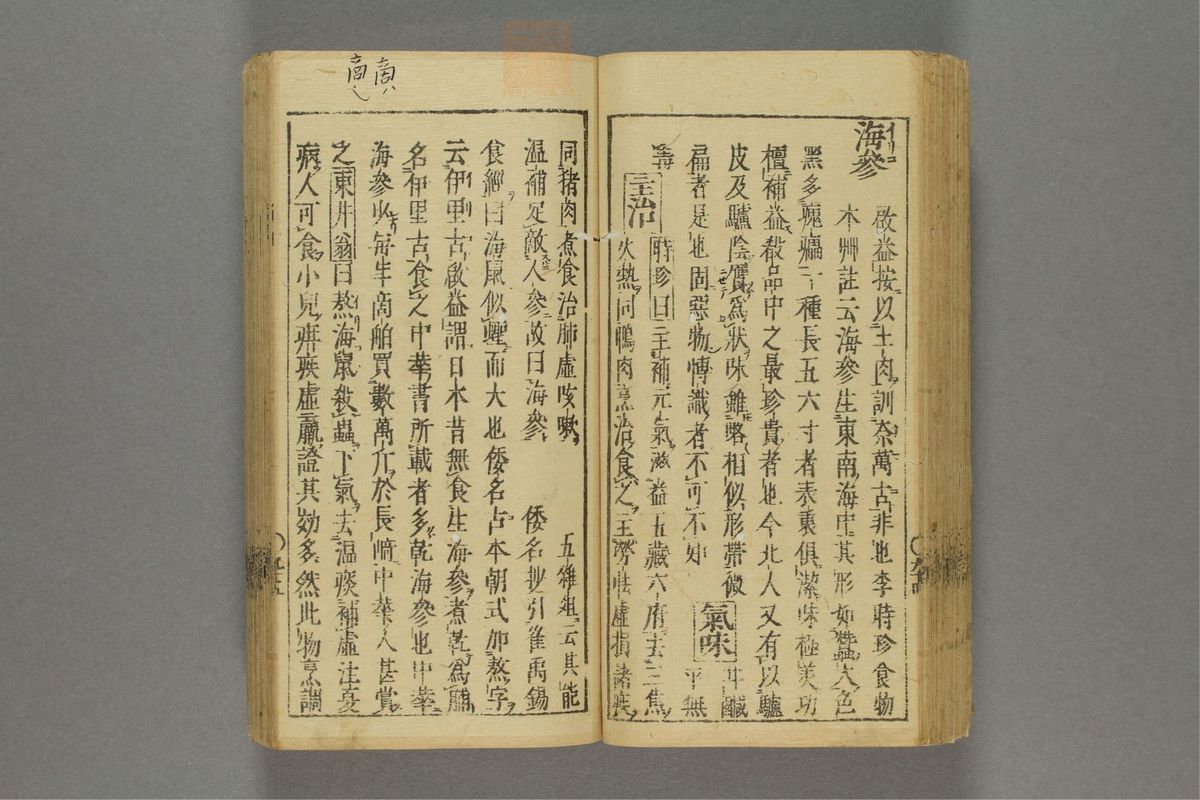 海參 イリコ
啟益按以土肉訓奈萬古非也李時珍食物
本艸註云海參生東南海中其形如蠶大色
黑多瘣㿔一種長五六寸者表裏俱潔味極美功
檀補益殽品中之最珍貴者也今北人又有以驢
皮及驢陰贋為狀味雖略相似形帶微
扁者是也固惡物慱識者不可不知 氣味 甘鹹平無
毒 主治 時珍曰主補元氣滋益五藏六腑去三焦
火熱同鴨肉烹治食之主勞怯虛損諸疾
同猪肉煮食治肺虛咳嗽 五雜俎云其能
温補足敵人參故曰海參 倭名抄引崔禹錫
食經曰海鼠似蛭而大也倭名古本朝式加熬字
云伊里古啟益謂日本昔無食生海參煮乾為脯
名伊里古食之中華書所載者多乾海參也中華
海參少每年商舶買數萬斤於長崎中華人甚賞
之東井翁曰熬海鼠殺蟲下氣去温痰補虛注憂
病人可食小兒疳疾虛羸證其効多然此物烹調
九十五